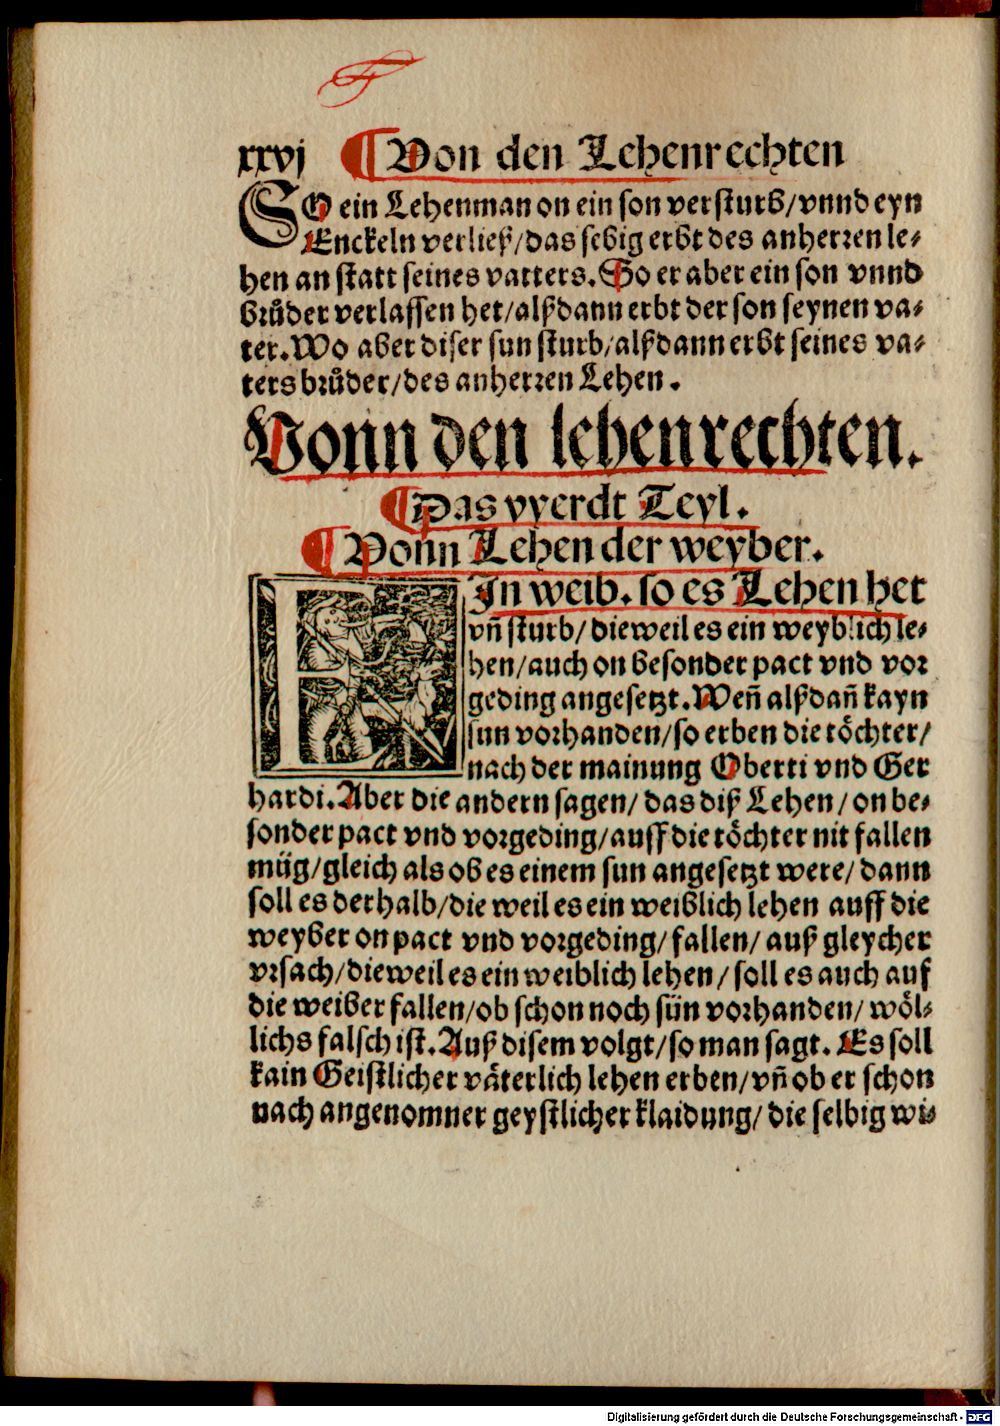 xxvj ¶Von den Lehenrechten
SO ein Lehenman on ein son versturb/vnnd eyn
Enckeln verließ/das sebig erbt des anherren le⸗
hen an statt seines vatters. So er aber ein son vnnd
brůder verlassen het/alßdann erbt der son seynen va⸗
ter. Wo aber diser sun sturb/alßdann erbt seines va⸗
ters brůder/des anherren Lehen.
Vonn den lehenrechten.
¶Das vyerdt Teyl.
¶Vonn Lehen der weyber.
EIn weib. so es Lehen het
vñ sturb/dieweil es ein weyblich le⸗
hen/auch on besonder pact vnd vor
geding angesetzt. Weñ alßdañ kayn
sun vorhanden/so erben die töchter/
nach der mainung Oberti vnd Ger
hardi. Aber die andern sagen/das diß Lehen/on be⸗
sonder pact vnd vorgeding/auff die töchter nit fallen
müg/gleich als ob es einem sun angesetzt were/dann
soll es derhalb/die weil es ein weiblich lehen auff die
weyber on pact vnd vorgeding/fallen/auß gleycher
vrsach/dieweil es ein weiblich lehen/soll es auch auf
die weiber fallen/ob schon noch sün vorhanden/wöl⸗
lichs falsch ist. Auß disem volgt/so man sagt. Es soll
kain Geistlicher väterlich lehen erben/vñ ob er schon
nach angenomner geystlicher klaidung/die selbig wi⸗
Digitalisierung gefördert durch die Deutsche Forschungsgemeinschaft - DFG